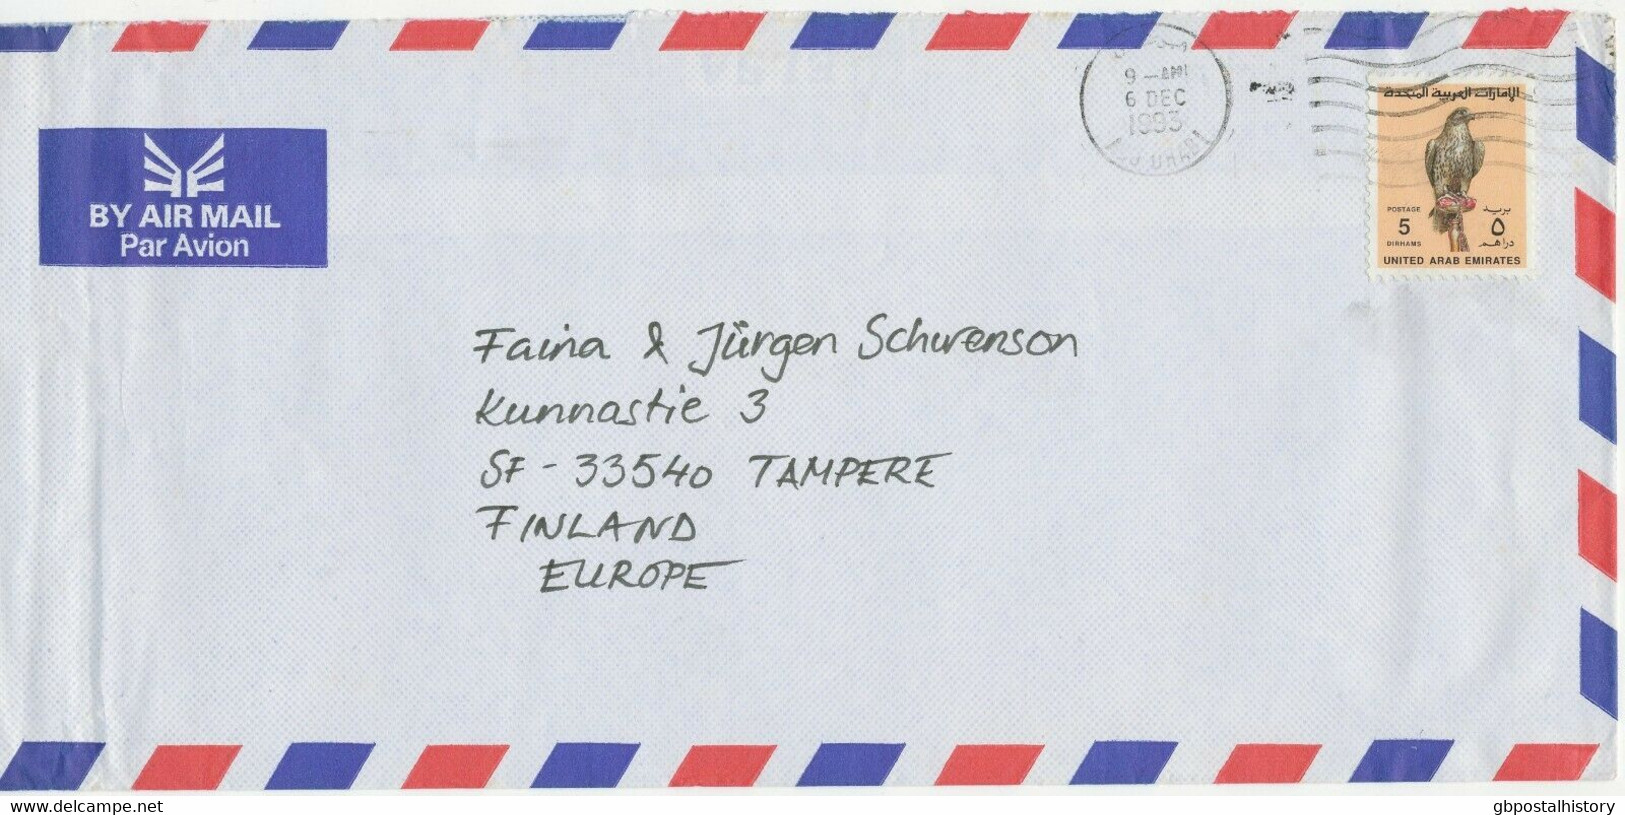 9 - AM
6 DEC
1993
الإمارات العربية المتحدة
POSTAGE
بريد
5
٥
DIRHAMS
دراهم
UNITED ARAB EMIRATES
BY AIR MAIL
Par Avion
Faina & Jürgen Schwenson
Kunnastie 3
SF - 33540 TAMPERE
FINLAND
EUROPE
delcampe.net
gbpostalhistory